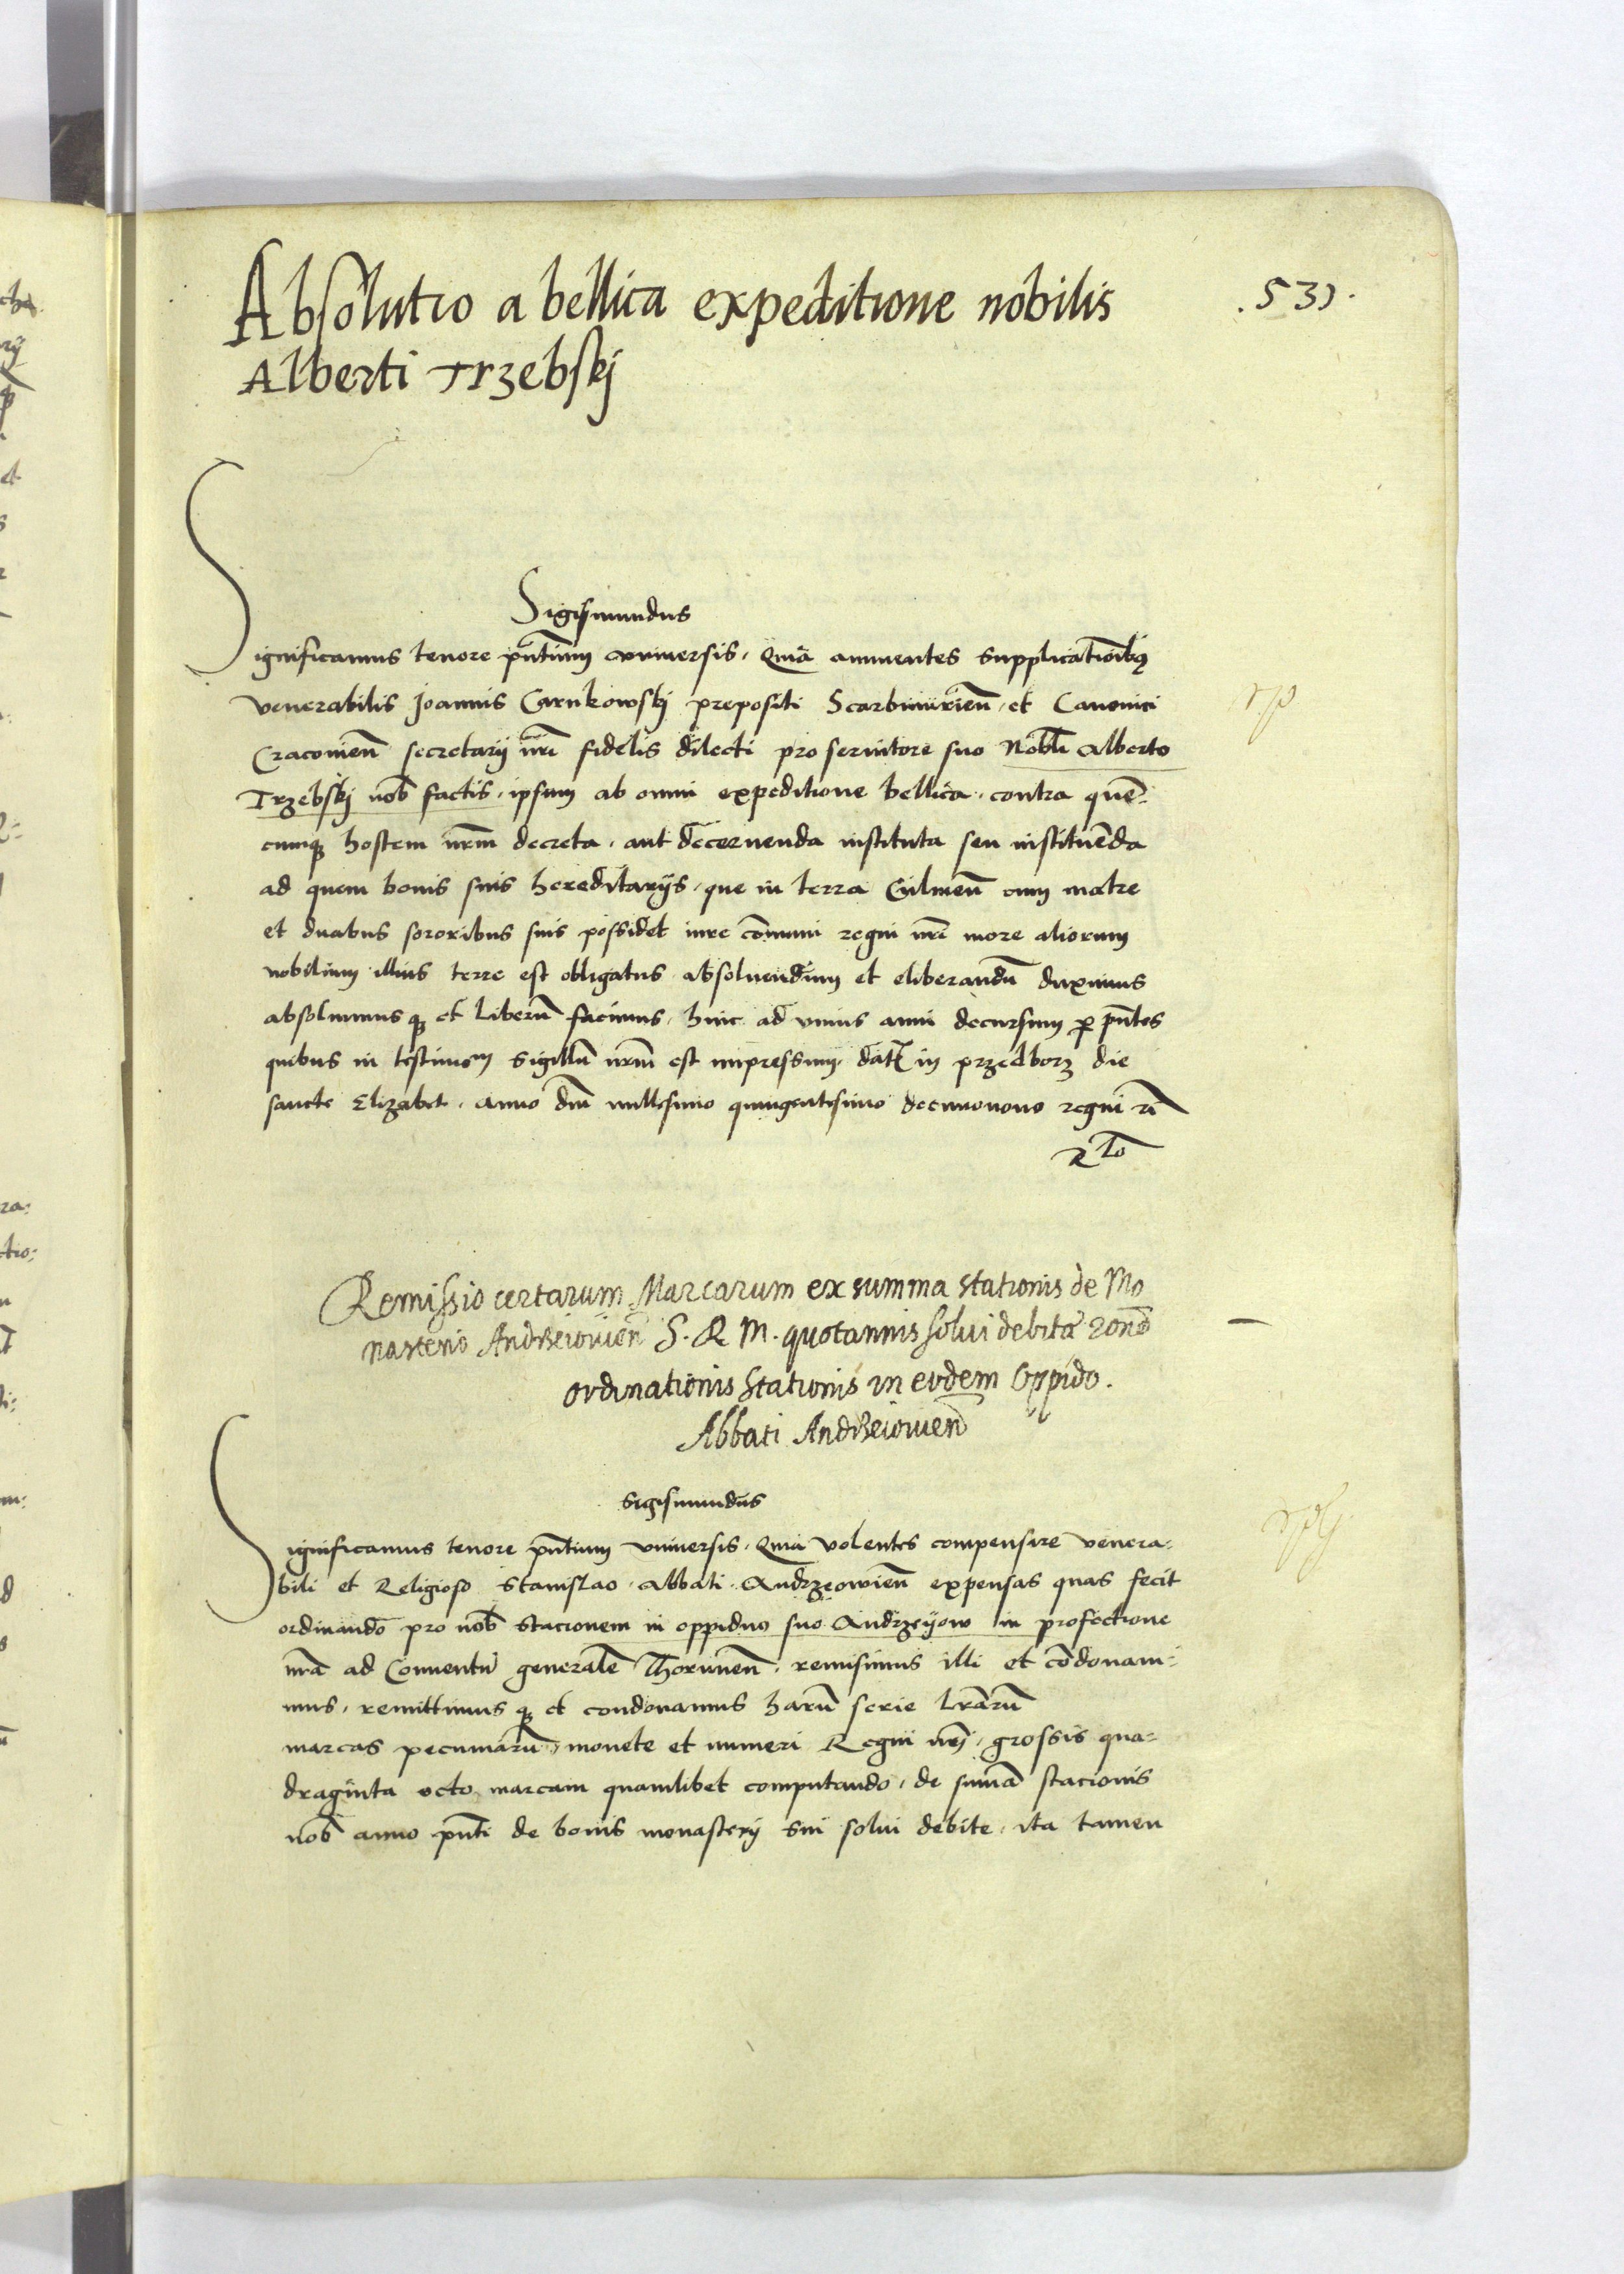 Absolutio a bellica expeditione nobilis
.531.
Alberti Trzebskj
Sigismundus
Significamus tenore pn̄tium vniversis. Quia annuentes supplicatiōibꝫ
venerabilis Joannis Carnkowskj prepositi Scarbimirien̄. et Canonici
Cracovien̄ secretarij nr̄i fidelis dilecti pro servitore suo Nobli Alberto
Trzebskj nob̄ factis. ipsum ab omni expeditione bellica. contra quē-
cumqꝫ hostem nr̄m decreta. aut decernenda instituta seu instituēda
ad quem bonis suis hereditarijs. que in terra Culmen̄ cum matre
et duabus sororibus suis possidet iure cōmuni regni nr̄i more aliorum
nobilium illius terre est obligatus absoluendum et eliberandū duximus
absoluimus qꝫ et liberū facimus. hinc ad vnius anni decursum per pn̄tes
quibus in testimoᵐ sigillū nr̄m est impressum. dat̄ in przedborz die
sancte Elizabet. anno dn̄i millesimo quingentesimo decimonono regni n̄
Rᵗᵒ
Remissio certarum Marcarum ex summa stationis de Mo
nasterio Andrzeiovien̄ S. R. M. quotannis solui debita rōnē
ordinationis stationis in eodem Oppido.
Abbati Andrzeiovien̄
Sigismundus
Significamus tenore pn̄tium vniversis. Quia volentes compensare venera-
bili et Religioso Stanislao. abbati. Andrzeowien̄ expensas quas fecit
ordinando pro nob̄ stacionem in oppiduo suo Andrzeyow in profectione
nr̄a ad Conventū generalē Thorunen̄. remisimus illi et cōdonavi-
mus. remittimus qꝫ et condonamus harū serie lr̄arū
marcas pecuniarū, monete et numeri Regni nr̄i, grossis qua-
draginta octo marcam quamlibet computando. de sumā stacionis
nob̄ anno pn̄ti de bonis monasterij sui solui debite. ita tamen